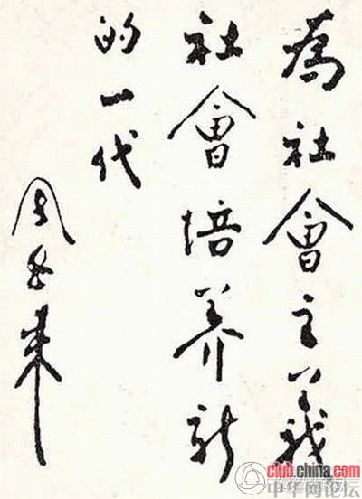 為社会主義
社会培养新
的一代
周恩来
club.china.com
中华网论坛